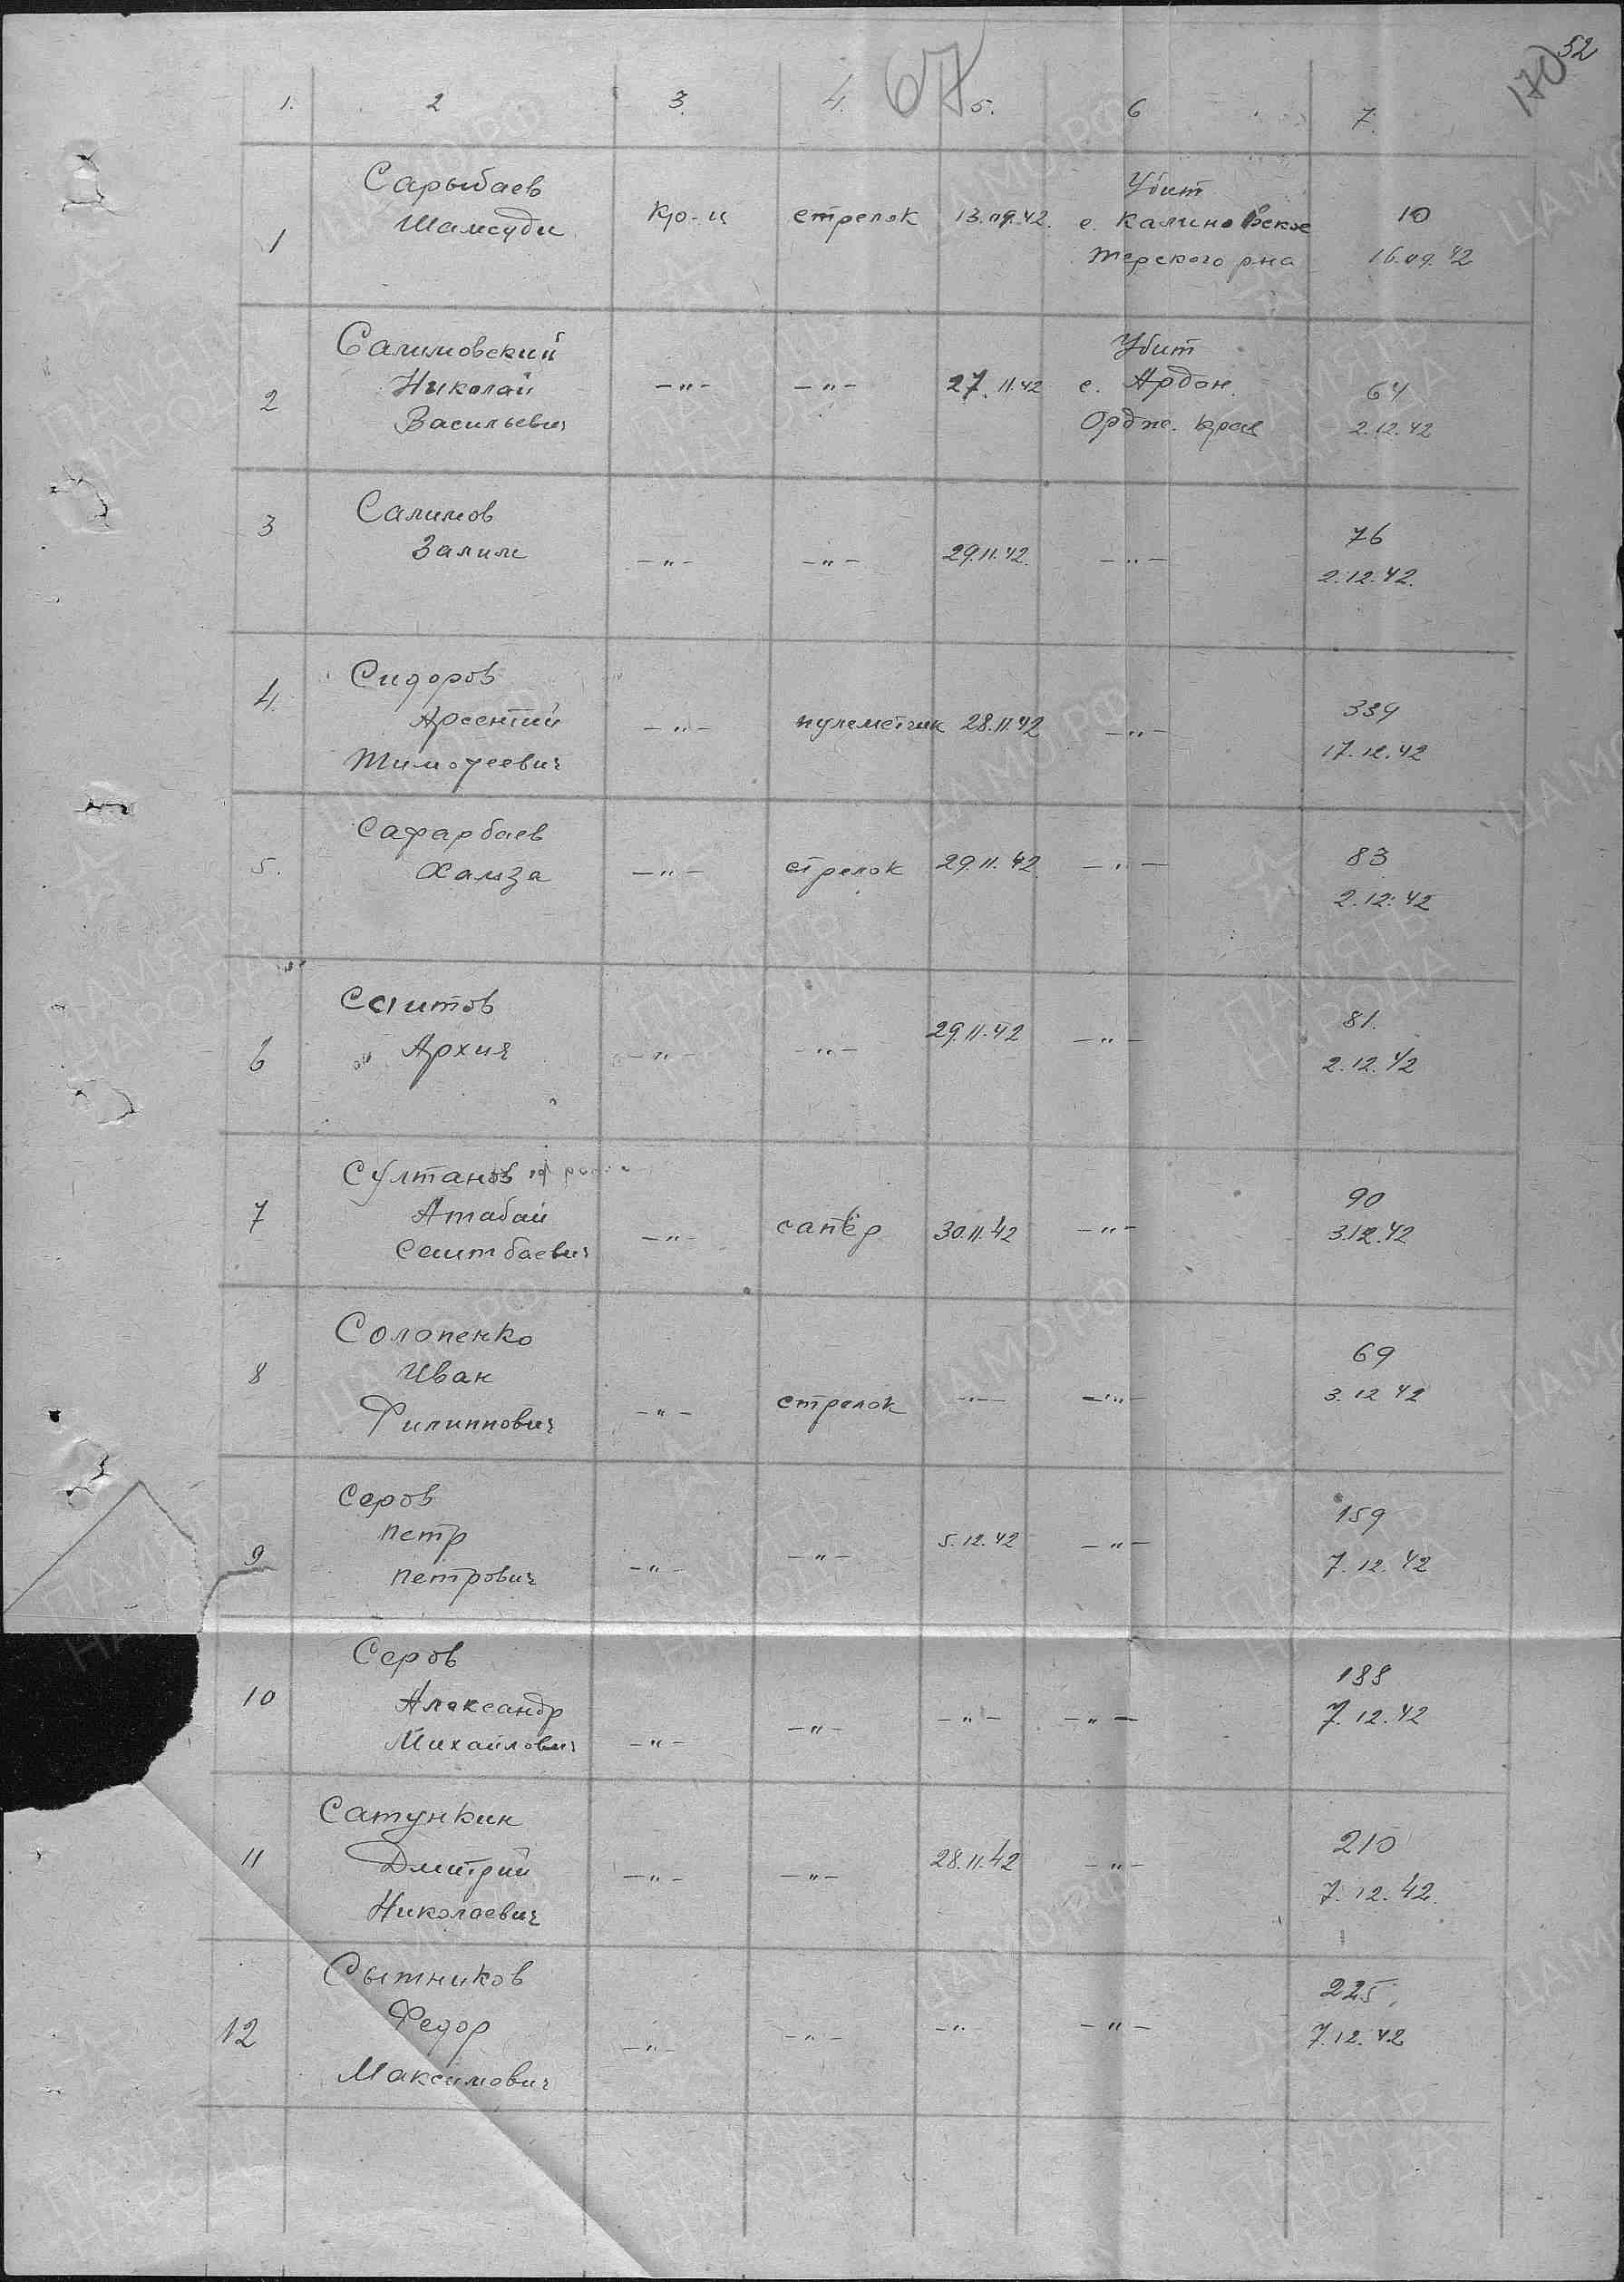 52
170
67
1. 2 3. 4. 5. 6 7.
Сарыбаев Убит
1 Шамсуди кр-ц стрелок 13.09.42. с. Калиновское 10
Терского р-на 16.09.42
Салимовский Убит
2 Николай —"— —"— 27.11.42 с. Ардон. 64
Васильевич Ордж. края 2.12.42
3 Салимов 76
Залим —"— —"— 29.11.42. —"— 2.12.42.
Сидоров
4. Арсентий —"— пулеметчик 28.11.42 —"— 339
Тимофеевич 17.12.42
Сафарбаев
5. Хамза —"— стрелок 29.11.42. —"— 83
2.12.42
Саитов
6 Архия —"— —"— 29.11.42 —"— 81.
2.12.42
Султанов
7 Атабай —"— сапёр 30.11.42 —"— 90
Сеитбаевич 3.12.42
Солопенко
8 Иван 69
Филиппович —"— стрелок —"— —"— 3.12.42
Серов
9 Петр —"— —"— 5.12.42 —"— 159
Петрович 7.12.42
Серов
10 Александр —"— —"— —"— 188
Михайлович —"— 7.12.42
Сатункин
11 Дмитрий —"— —"— 28.11.42 —"— 210
Николаевич 7.12.42.
Сытников
12 Федор —"— —"— —"— —"— 225
Максимович 7.12.42
ЦАМО.РФ
ПАМЯТЬ
НАРОДА